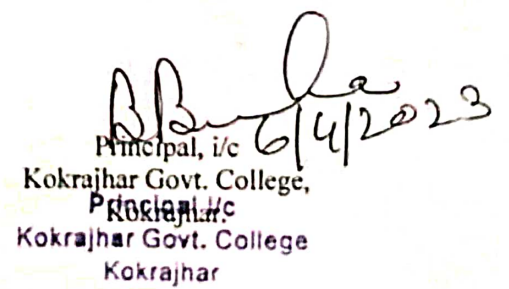 6/4/2023
Principal, i/c
Kokrajhar Govt. College,
Kokrajhar.
Principal i/c
Kokrajhar Govt. College
Kokrajhar